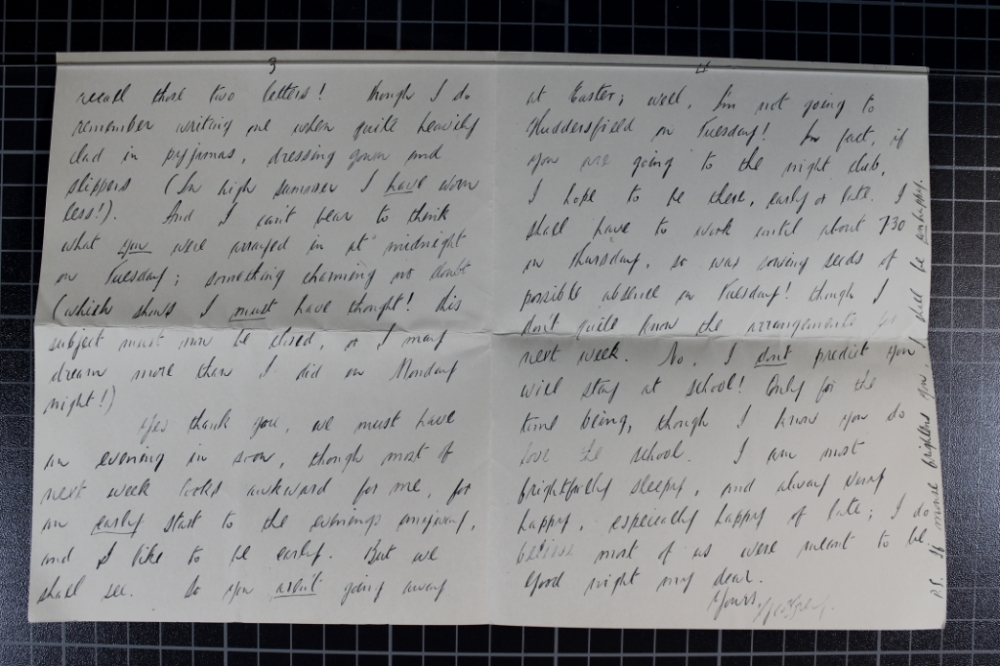 3
recall those two letters! Though I do
remember writing one when quite heavily
clad in pyjamas, dressing gown and
slippers (In high summer I have worn
less!). And I can't bear to think
what you were arrayed in at midnight
on Tuesday; something charming no doubt
(which shows I must have thought! This
subject must now be closed, or I may
dream more than I did on Monday
night!)
Yes thank you, we must have
an evening in soon, though most of
next week looks awkward for me, for
an early start to the evenings anyway,
and I like to be early. But we
shall see. So you aren't going away
at Easter; well, I'm not going to
Huddersfield on Tuesday! In fact, if
you are going to the night club,
I hope to be there, early or late. I
shall have to work until about 730
on Thursday, so was sowing seeds of
possible absence on Tuesday! Though I
don't quite know the arrangements for
next week. No, I don't predict you
will stay at school! Only for the
time being, though I know you do
love the school. I am most
frightfully sleepy, and always very
happy, especially happy of late; I do
believe most of us were meant to be.
Good night my dear.
Yours,
P.S. If mine brightens you, I shall be unhappy.